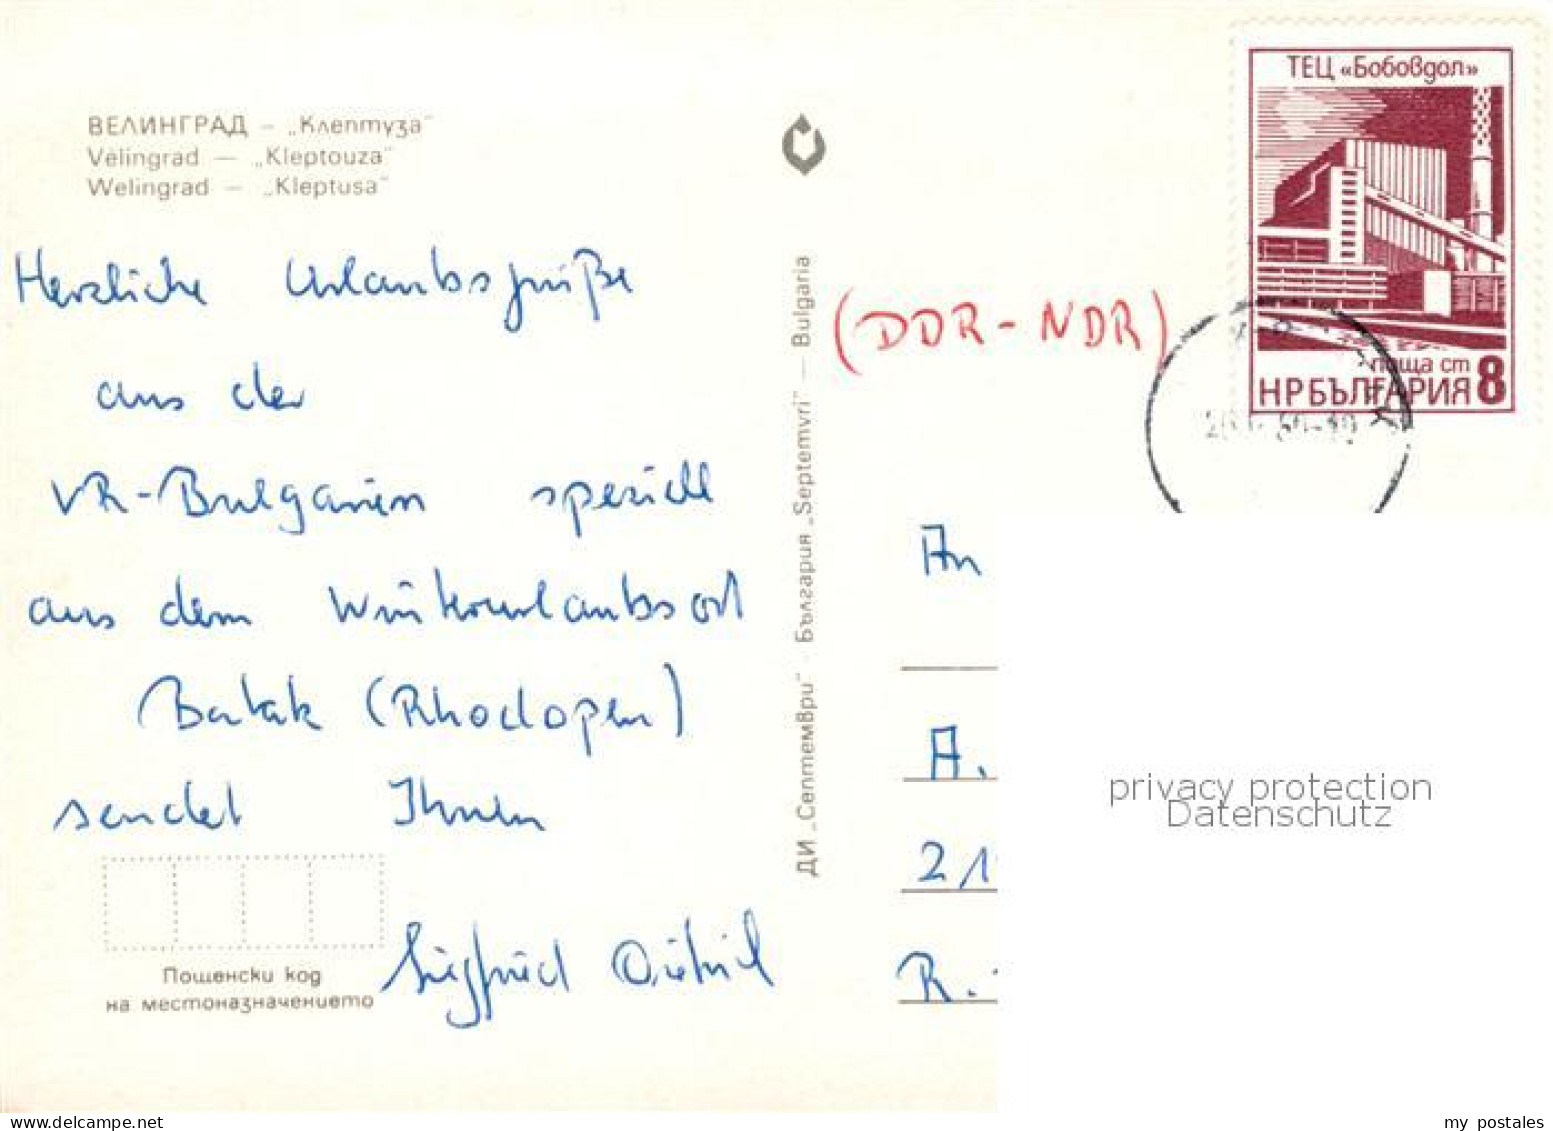 ВЕЛИНГРАД — „Клептуза"
Vélingrad — „Kleptouza"
Welingrad — „Kleptusa"
Herzliche Urlaubsgrüße
aus der
VR-Bulgarien speziell
aus dem Winterurlaubsort
Batak (Rhodopen)
sendet Ihnen
Siegfried
Пощенски код
на местоназначението
ДИ „Септември" - България „Septemvri" — Bulgaria
(DDR-NDR)
ТЕЦ «Бобовдол»
поща ст 8
НР БЪЛГАРИЯ
An
A.
21
R.
privacy protection
Datenschutz
delcampe.net
my postales